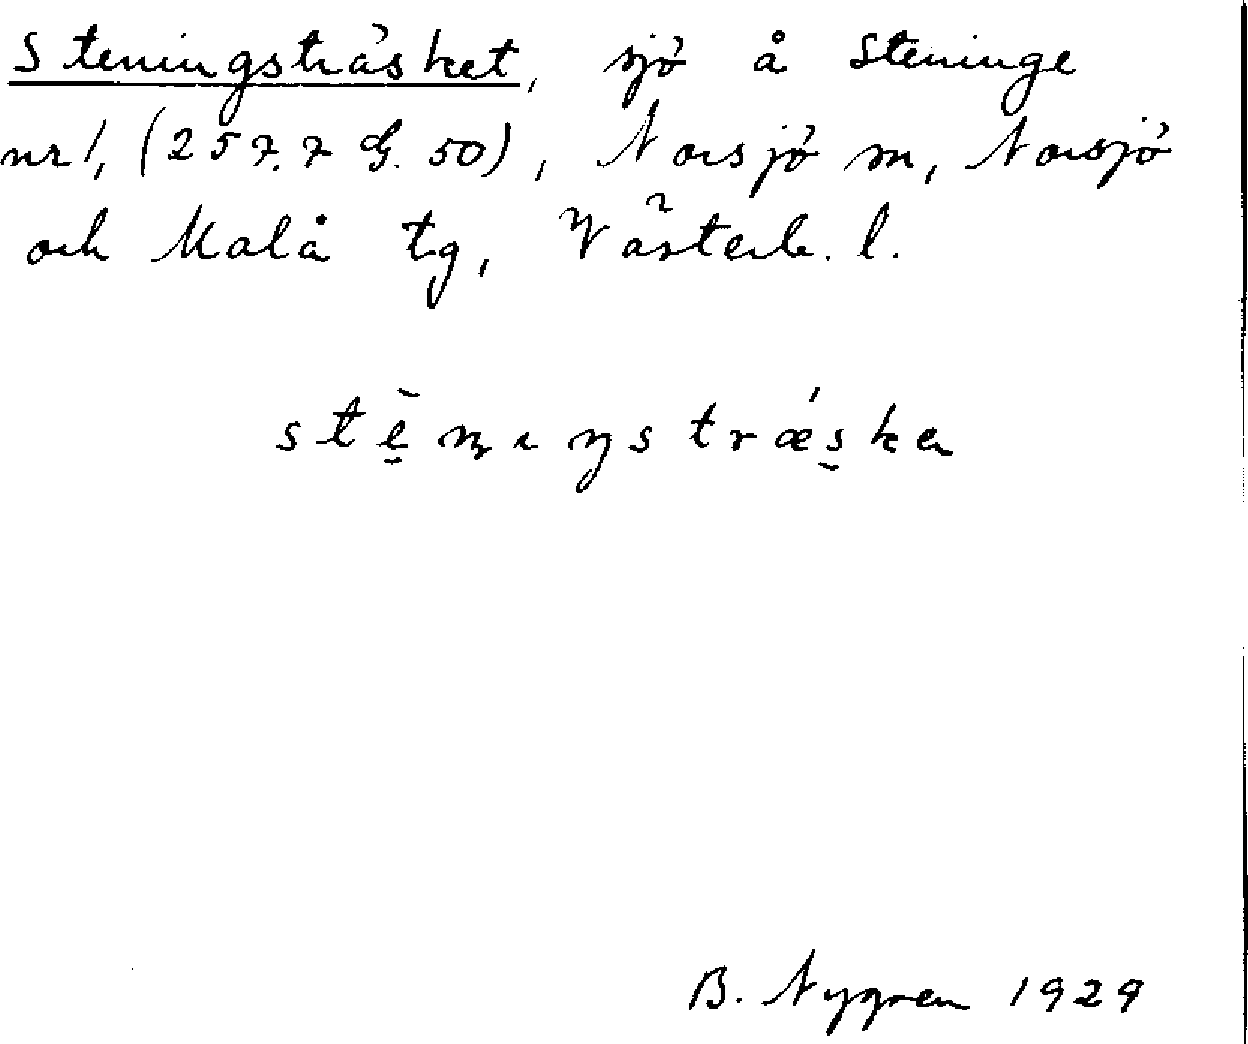 Steningsträsket, sjö å Steninge
nr 1, (257.7 G. 50), Norsjö sn, Norsjö
och Malå tg, Västerb. l.
stèn̩ɩŋstrǽska
B. Nygren 1929